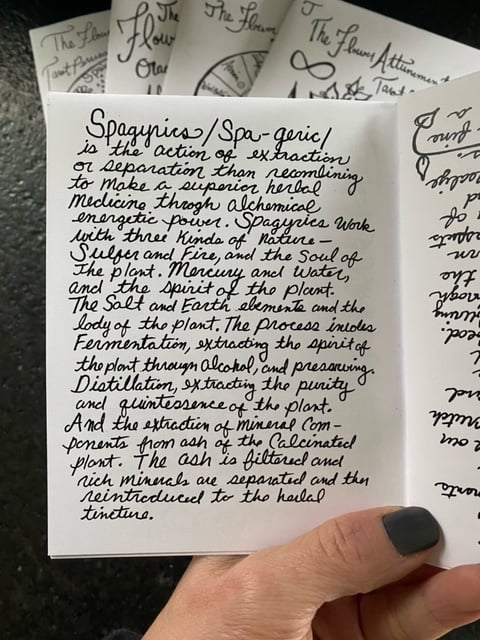 The Flow
Tarot
The
Flow
Ora
The Flow
The Flower Attunement
Tarot
Spagyrics/Spa-geric/
is the action of extraction
or separation than recombing
to make a superior herbal
medicine throgh alchemical
energetic power. Spagyrics work
with three kinds of nature—
Sulfer and Fire, and the Soul of
the plant. Mercury and Water,
and the spirit of the plant.
The Salt and Earth elements and the
body of the plant. The process inludes
Fermentation, extracting the spirit of
the plant through alcohol, and preserving.
Distillation, extracting the purity
and quintessence of the plant.
And the extraction of mineral com-
ponents from ash of the Calcinated
plant. The ash is filtered and
rich minerals are separated and then
reintroduced to the herbal
tincture.